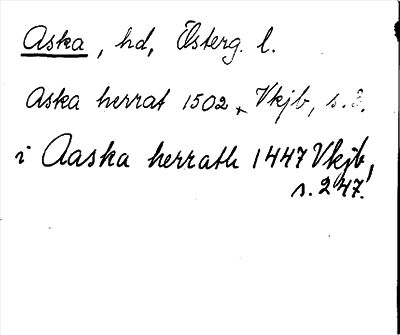 Aska, hd, Österg. l.
Aska herrat 1502, Vkjb, s. 3.
i Aaska herrath 1447 Vkjb,
s. 247.